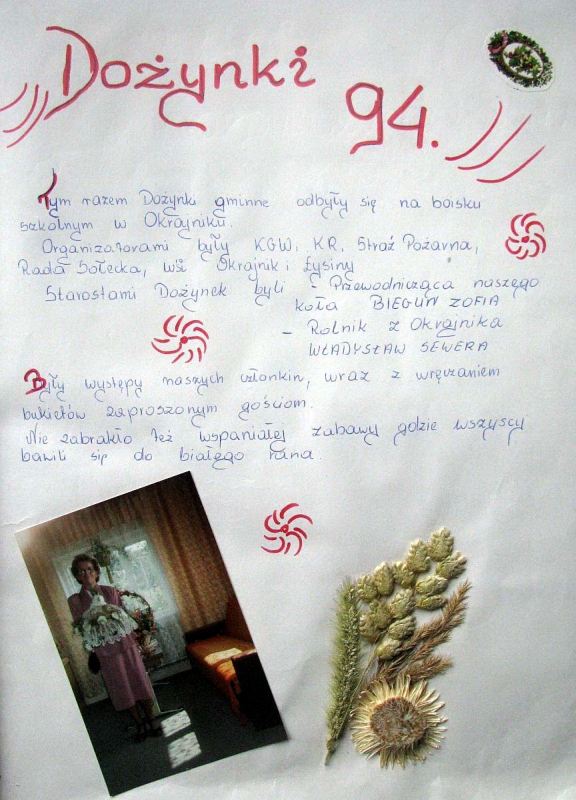 Dożynki
94.
Tym razem Dożynki gminne odbyły się na boisku
szkolnym w Okrajniku.
Organizatorami były KGW, KR, Straż Pożarna,
Rada Sołecka, wsi Okrajnik i Łysiny
Starostami Dożynek byli - Przewodnicząca naszego
koła BIEGUN ZOFIA
- Rolnik z Okrajnika
WŁADYSŁAW SEWERA
Były występy naszych członkiń, wraz z wręczaniem
bukietów zaproszonym gościom.
Nie zabrakło też wspaniałej zabawy gdzie wszyscy
bawili się do białego rana.